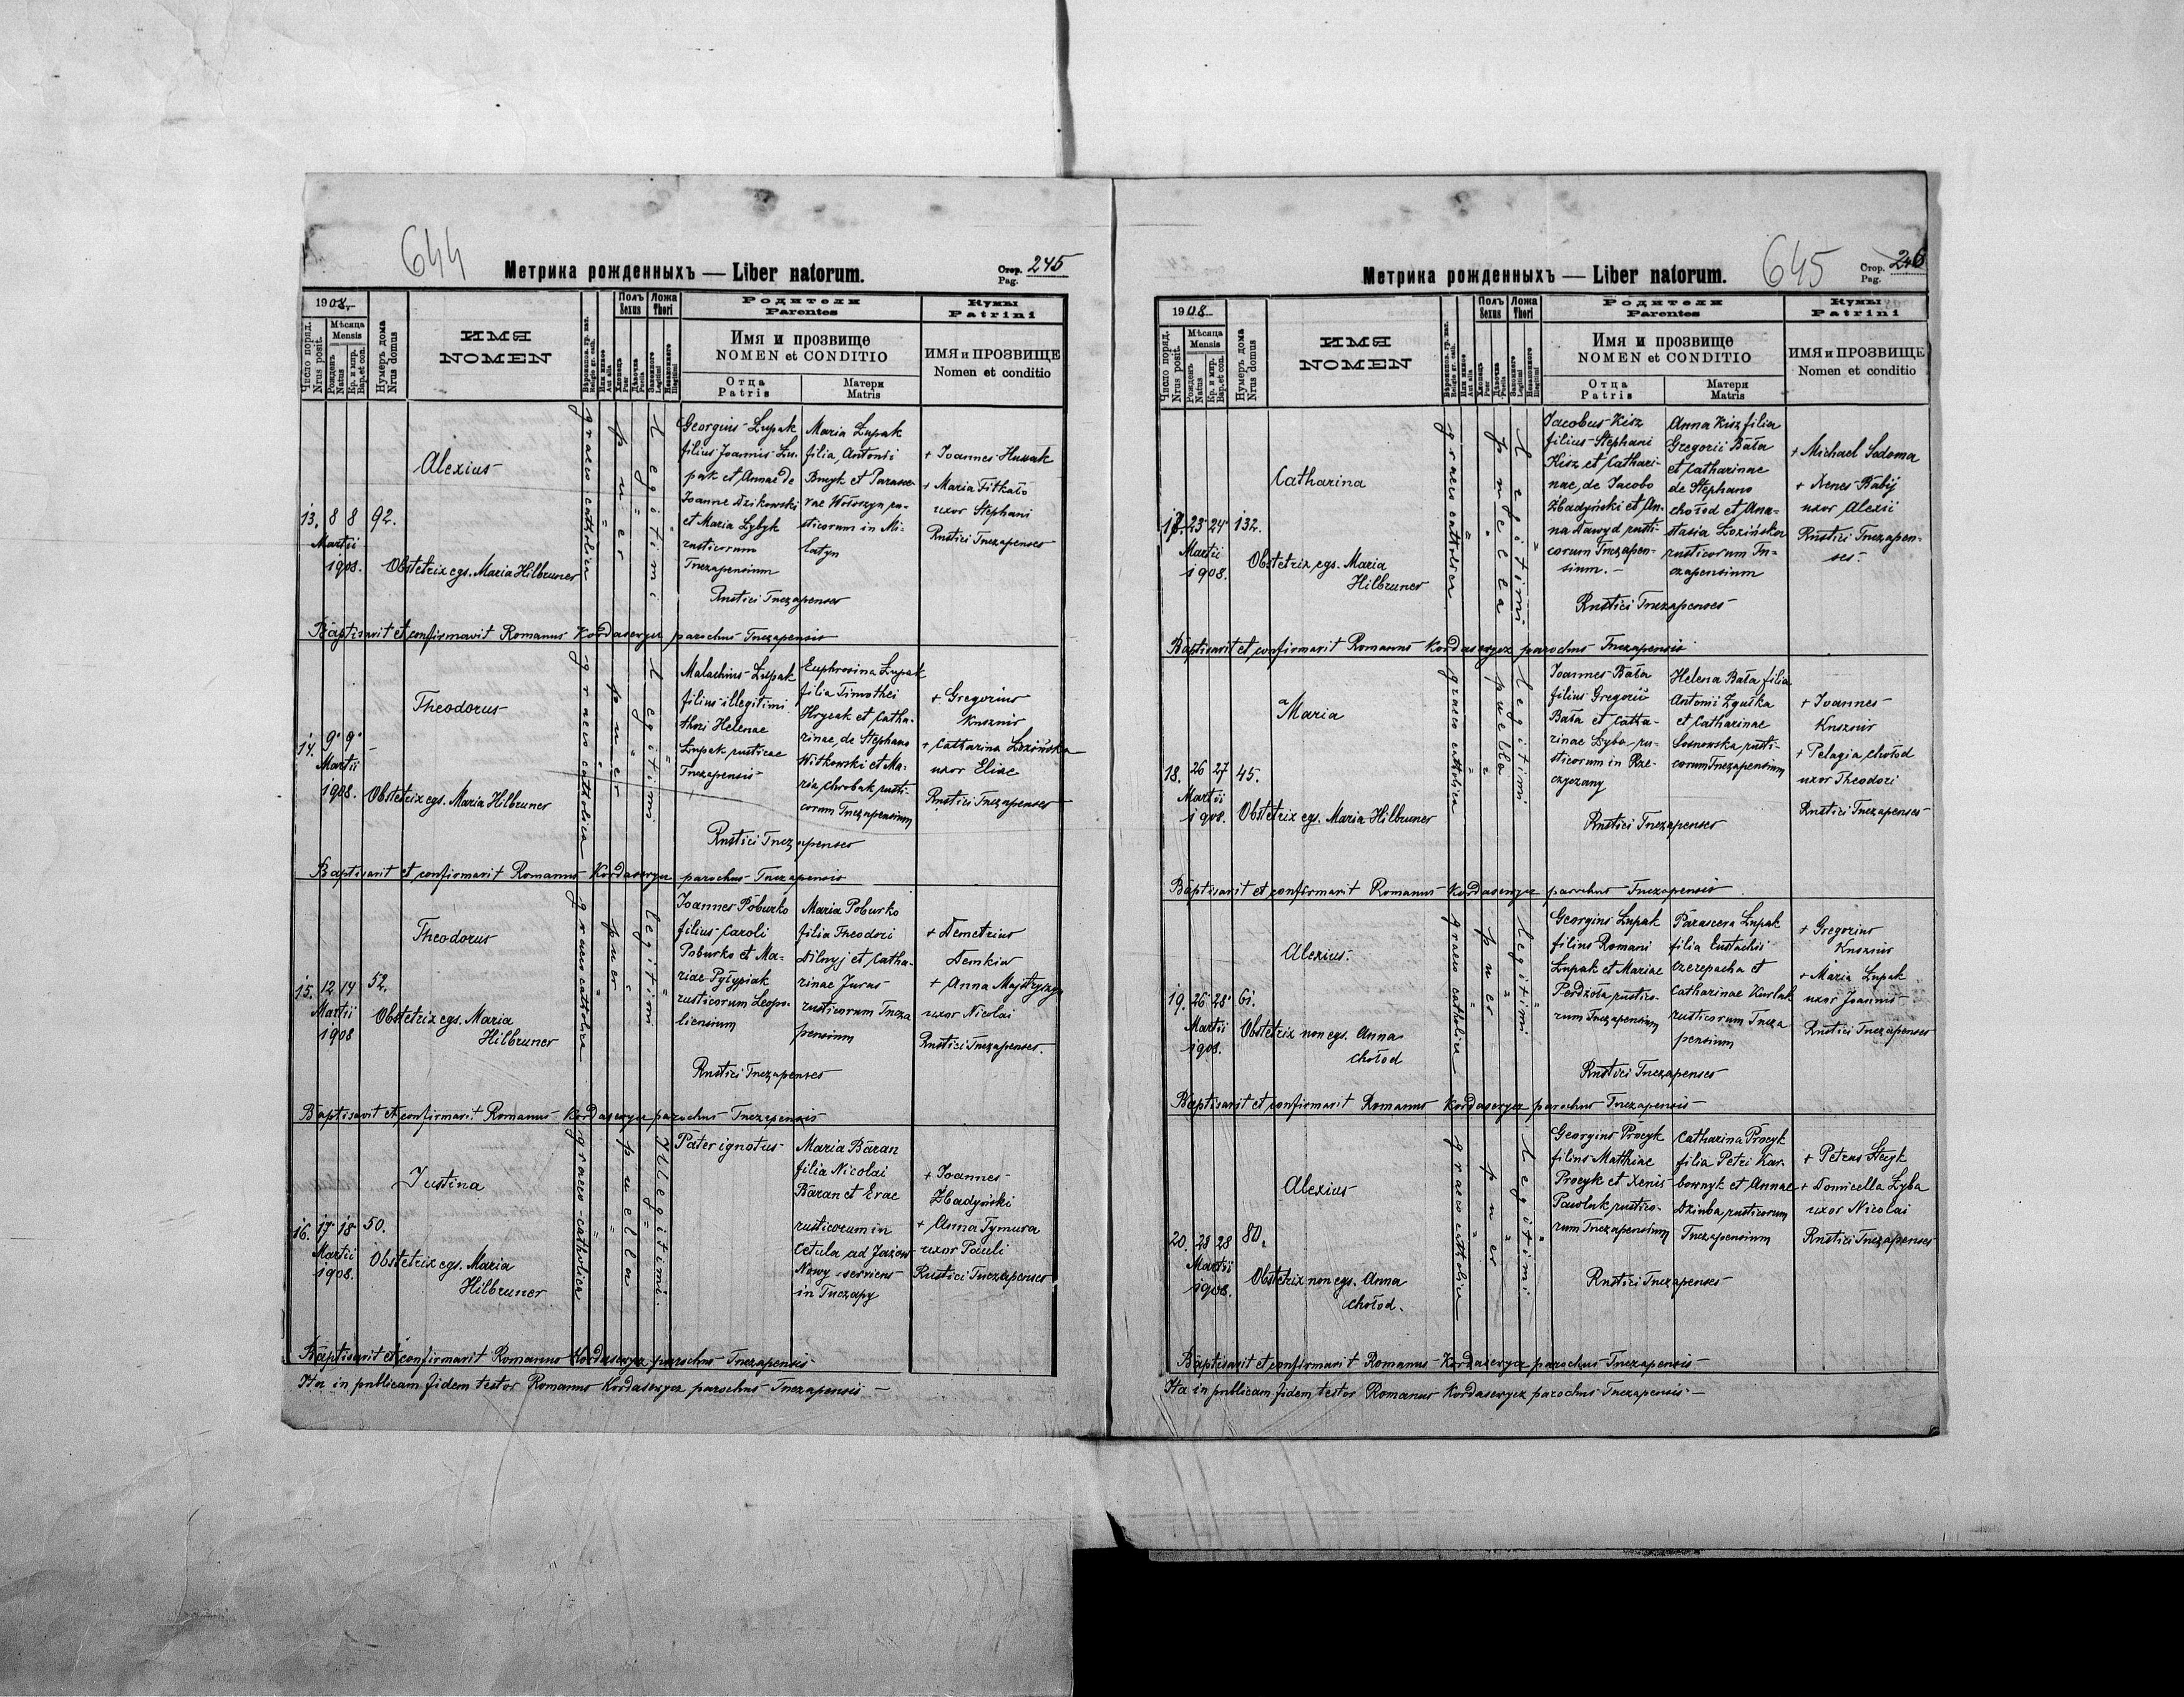 644
Метрика рожденныхъ — Liber natorum.
Стор. 245
Pag.
1908.
Число поряд.
Nrus posit.
Мѣсяца
Mensis
Рожденъ
Natus
Кр. и мпр.
Bap. et con.
Нумеръ дома
Nrus domus
ИМЯ
NOMEN
Полъ
Sexus
Хлопець
Puer
Дѣвочка
Puella
Ложа
Thori
Законного
Legitimi
Незаконного
Illegitimi
Родители
Parentes
Имя и прозвище
NOMEN et CONDITIO
Отца
Patris
Матери
Matris
Кумы
Patrini
ИМЯ и ПРОЗВИЩЕ
Nomen et conditio
13. 8 8 92.
Martii
1908.
Alexius
Obstetrix egs. Maria Hilbruner
graeco catholica
puer
legitimi
Georgius Łupak
filius Joannis Łu-
pak et Annae de
Joanne Dzikowski
et Maria Łybyk
rusticorum
Tuczapensium
Maria Łupak
filia Antonii
Bmyk et Parasce-
vae Wołoszyn ru-
sticorum in Mi-
latyn
Rustici Tuczapenses
+ Joannes Hussak
+ Maria Fitkało
uxor Stephani
Rustici Tuczapenses
Baptisavit et confirmavit Romanus Kordasewycz parochus Tuczapensis
14. 9 9 -
Martii
1908.
Theodorus
Obstetrix egs. Maria Hilbruner
graeco catholica
puer
legitimi
Malachius Łupak
filius illegitimi
thori Helenae
Łupak rusticae
Tuczapensis
Euphrosina Łupak
filia Timothei
Hrycak et Catha-
rinae, de Stephano
Witkowski et Ma-
ria Chrobak, rusti-
corum Tuczapensium
Rustici Tuczapenses
+ Gregorius
Kusznir
+ Catharina Łozińska
uxor Eliae
Rustici Tuczapenses
Baptisavit et confirmavit Romanus Kordasewycz parochus Tuczapensis
15. 12 14 52.
Martii
1908
Theodorus
Obstetrix egs. Maria
Hilbruner
graeco catholica
puer
legitimi
Joannes Poburko
filius Caroli
Poburko et Ma-
riae Pyłypiak
rusticorum Leopo-
liensium
Maria Poburko
filia Theodori
Dilnyj et Catha-
rinae Juras
rusticorum Tucza
pensium
Rustici Tuczapenses
+ Demetrius
Demkiw
+ Anna Majstryszyn
uxor Nicolai
Rustici Tuczapenses.
Baptisavit et confirmavit Romanus Kordasewycz parochus Tuczapensis
16. 17 18 50.
Martii
1908.
Justina
Obstetrix egs. Maria
Hilbruner
graeco-catholica
puella
illegitimi.
Pater ignotus
Maria Baran
filia Nicolai
Baran et Evae
rusticorum in
Cetula ad Jazów
Nowy serviens
in Tuczapy
+ Joannes
Zbadyński
+ Anna Tymura
uxor Pauli
Rustici Tuczapenses
Baptisavit et confirmavit Romanus Kordasewycz parochus Tuczapensis
Ita in publicam fidem testor Romanus Kordasewycz parochus Tuczapensis —
645
Метрика рожденныхъ — Liber natorum.
Стор. 246
Pag.
1908
Число поряд.
Nrus posit.
Мѣсяца
Mensis
Рожденъ
Natus
Кр. и мпр.
Bap. et con.
Нумеръ дома
Nrus domus
ИМЯ
NOMEN
Полъ
Sexus
Хлопець
Puer
Дѣвочка
Puella
Ложа
Thori
Законного
Legitimi
Незаконного
Illegitimi
Родители
Parentes
Имя и прозвище
NOMEN et CONDITIO
Отца
Patris
Матери
Matris
Кумы
Patrini
ИМЯ и ПРОЗВИЩЕ
Nomen et conditio
17. 23 24 132.
Martii
1908.
Catharina
Obstetrix egs. Maria
Hilbruner
graeco catholica
puella
legitimi
Jacobus Kisz
filius Stephani
Kisz et Cathari-
nae, de Jacobo
Zbadyński et An-
na Dawyd rusti-
corum Tuczapen-
sium. -
Anna Kisz filia
Gregorii Bała
et Catharinae
de Stephano
Chołod et Ana-
stasia Łozińska
rusticorum Tu-
czapensium
Rustici Tuczapenses
+ Michael Sodoma
+ Xenes Babij
uxor Alexii
Rustici Tuczapen-
ses.
Baptisavit et confirmavit Romanus Kordasewycz parochus Tuczapensis
18. 26 27 45.
Martii
1908.
Maria
Obstetrix egs. Maria Hilbruner
graeco catholica
puella
legitimi
Joannes Bała
filius Gregorii
Bała et Catha-
rinae Zyba ru-
sticorum in Rze-
czyczany
Helena Bała filia
Antonii Zguśka
et Catharinae
Sosnowska rusti-
corum Tuczapensium
Rustici Tuczapenses
+ Joannes
Kusznir
+ Pelagia Chołod
uxor Theodori
Rustici Tuczapenses
Baptisavit et confirmavit Romanus Kordasewycz parochus Tuczapensis
19. 26 28 61.
Martii
1908.
Alexius.
Obstetrix non egs. Anna
Chołod
graeco catholica
puer
legitimi
Georgius Łupak
filius Romani
Łupak et Mariae
Perdzoła rustico-
rum Tuczapensium
Parascera Łupak
filia Eustachii
Czerepacha et
Catharinae Kurlak
rusticorum Tucza
pensium
Rustici Tuczapenses
+ Gregorius
Kusznir
+ Maria Łupak
uxor Joannis
Rustici Tuczapenses
Baptisavit et confirmavit Romanus Kordasewycz parochus Tuczapensis
20. 28 28 80.
Martii
1908.
Alexius
Obstetrix non egs. Anna
Chołod.
graeco catholica
puer
legitimi
Georgius Procyk
filius Matthiae
Procyk et Xenis
Pawluk rustico-
rum Tuczapensium
Catharina Procyk
filia Petri Kar-
bownyk et Annae
Dziuba, rusticorum
Tuczapensium
Rustici Tuczapenses
+ Petrus Stecyk
+ Domicella Zyba
uxor Nicolai
Rustici Tuczapenses
Baptisavit et confirmavit Romanus Kordasewycz parochus Tuczapensis
Ita in publicam fidem testor Romanus Kordasewycz parochus Tuczapensis —